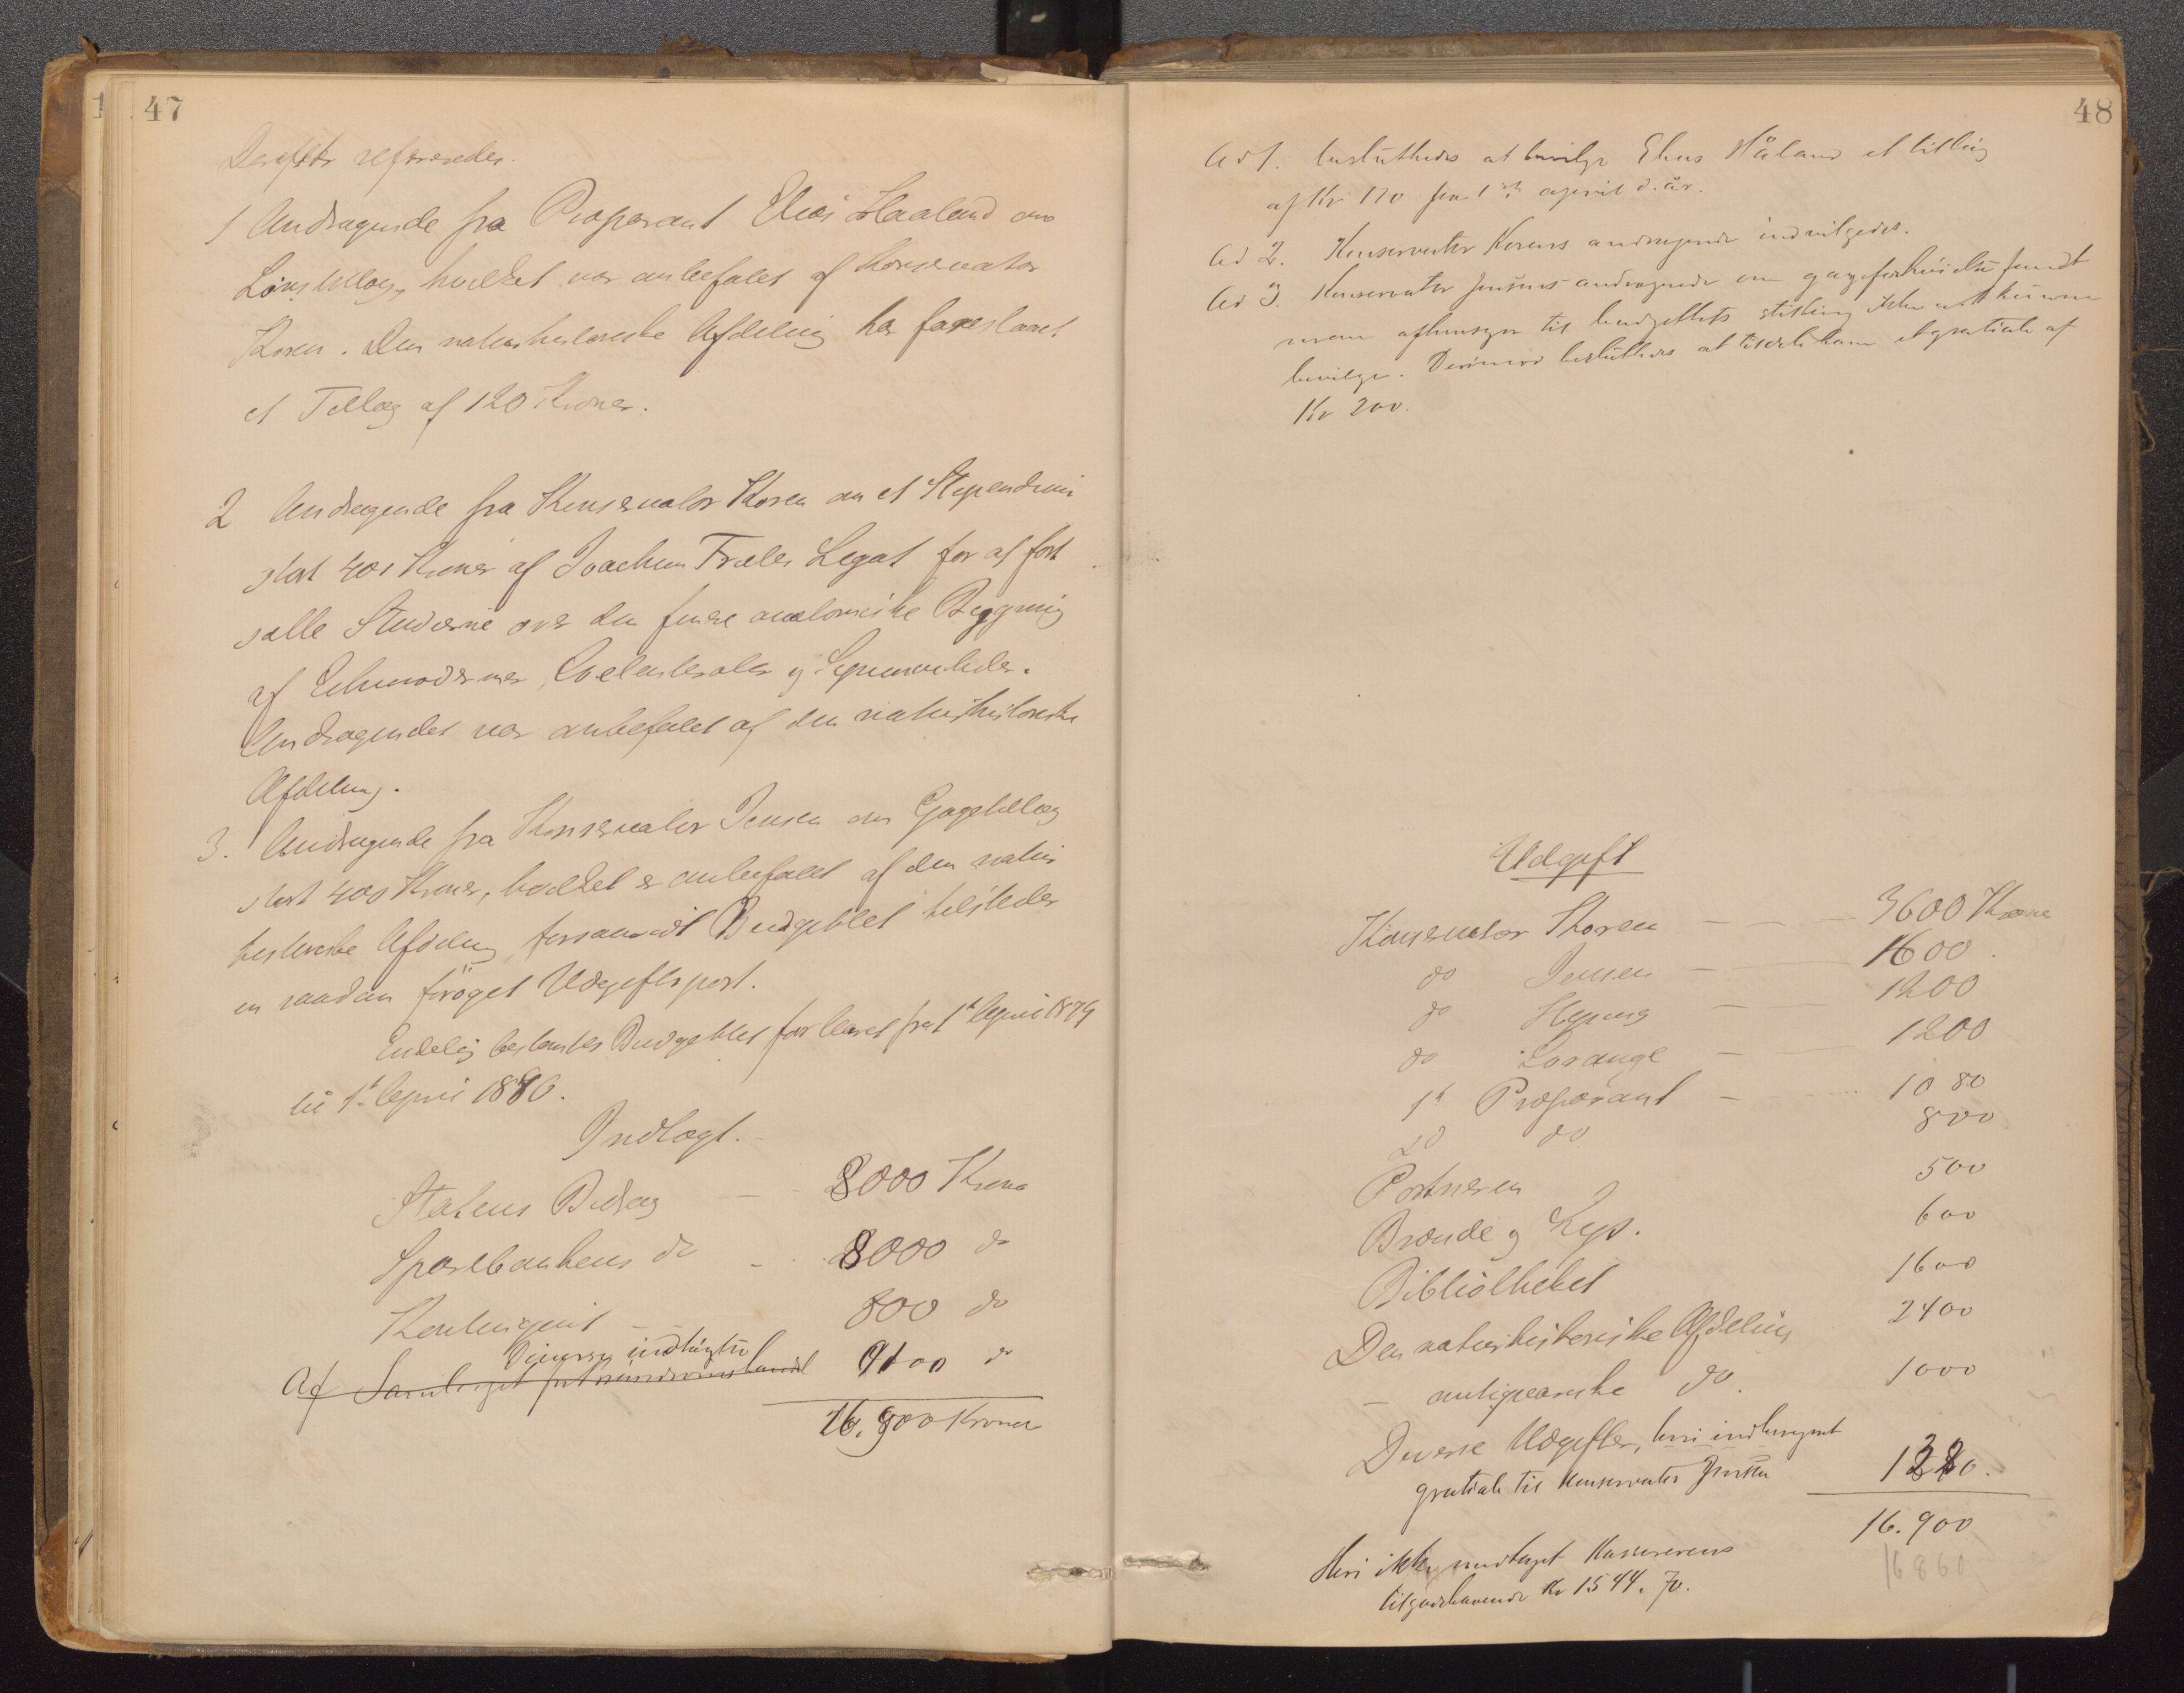 47
Derefter refereredes.
1 Andragende fra Præparant Elias Haaland om
Lønstillæg, hvilket var anbefalet af Konservator
Koren. Den naturhistoriske Afdeling har foreslaaet
et Tillæg af 120 Kroner.
2 Andragende fra Konservator Koren om et Stipendium
stort 400 Kroner af Joachim Frieles Legat for at fort
sætte Studierne over den finere anatomiske Bygning
af Echinodermer, Coelenterater og Gephyreer.
Andragendet var anbefalet af den naturhistoriske
Afdeling.
3. Andragende fra Konservator Jensen om Gagetillæg
stort 400 Kroner, hvilket er anbefalet af den natur
historiske Afdeling, forsaavidt Budgettet tilsteder
en saadan forøget Udgiftspost.
Endelig bestemtes Budgettet for Aaret fra 1st April 1879
til 1st April 1880.
Indtægt.
Statens Bidrag — 8000 Kroner
Sparebankens do — 8000 do
Kontingent — 800 do
Diverse indtægter
Af 9100 do
16.900 Kroner
48
Ad 1. besluttedes at bevilge Elias Håland et tillæg
af Kr 120 fra 1ste april d. år.
Ad 2. Konservator Korens andragende indvilgedes.
Ad 3. Konservator Jensens andragende om gageforhøielse fandt
man af hensyn til budgettets stilling ikke at kunne
bevilge. Derimod besluttedes at tildele ham et gratiale af
Kr 200.
Udgift
Konservator Koren — — — 3600 Kroner
do Jensen — — 1600
do — — 1200
do Lorange — — 1200
1st Præparant — 1080
2d do 800
Portneren 500
Brænde og Lys. 600
Bibliotheket 1600
Den naturhistoriske Afdeling 2400
— antiqvariske do. 1000
Diverse Udgifter, heri indberegnet
gratiale til Konservator Jensen 1320.
16.900
16860
Heri ikke medtaget Kassererens
tilgodehavende Kr 1544. 70.